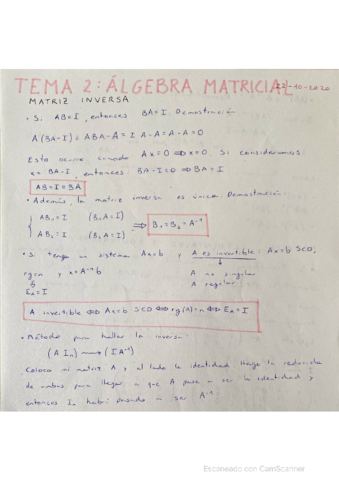 TEMA 2: ÁLGEBRA MATRICIAL 22-10-2020
MATRIZ INVERSA
• Si AB=I, entonces BA=I. Demostración
A(BA-I) = ABA-A = I A-A = A-A = 0
Esto ocurre cuando Ax=0 ⟺ x=0. Si consideramos
x = BA-I, entonces: BA-I=0 ⟺ BA=I
AB=I=BA
• Además, la matriz inversa es única. Demostración:
AB₁=I (B₁A=I)
AB₂=I (B₂A=I) ⟹ B₁=B₂=A⁻¹
• Si tengo un sistema Ax=b y A es invertible: Ax=b SCD,
rg=n y x=A⁻¹b A no singular
A regular
E_A=I
A invertible ⟺ Ax=b SCD ⟺ rg(A)=n ⟺ E_A=I
• Método para hallar la inversa:
(A Iₙ) ⟶ (I A⁻¹)
Coloco mi matriz A y al lado la identidad. Hago la reducida
de ambas para llegar a que A pase a ser la identidad y
entonces In habrá pasado a ser A⁻¹
Escaneado con CamScanner